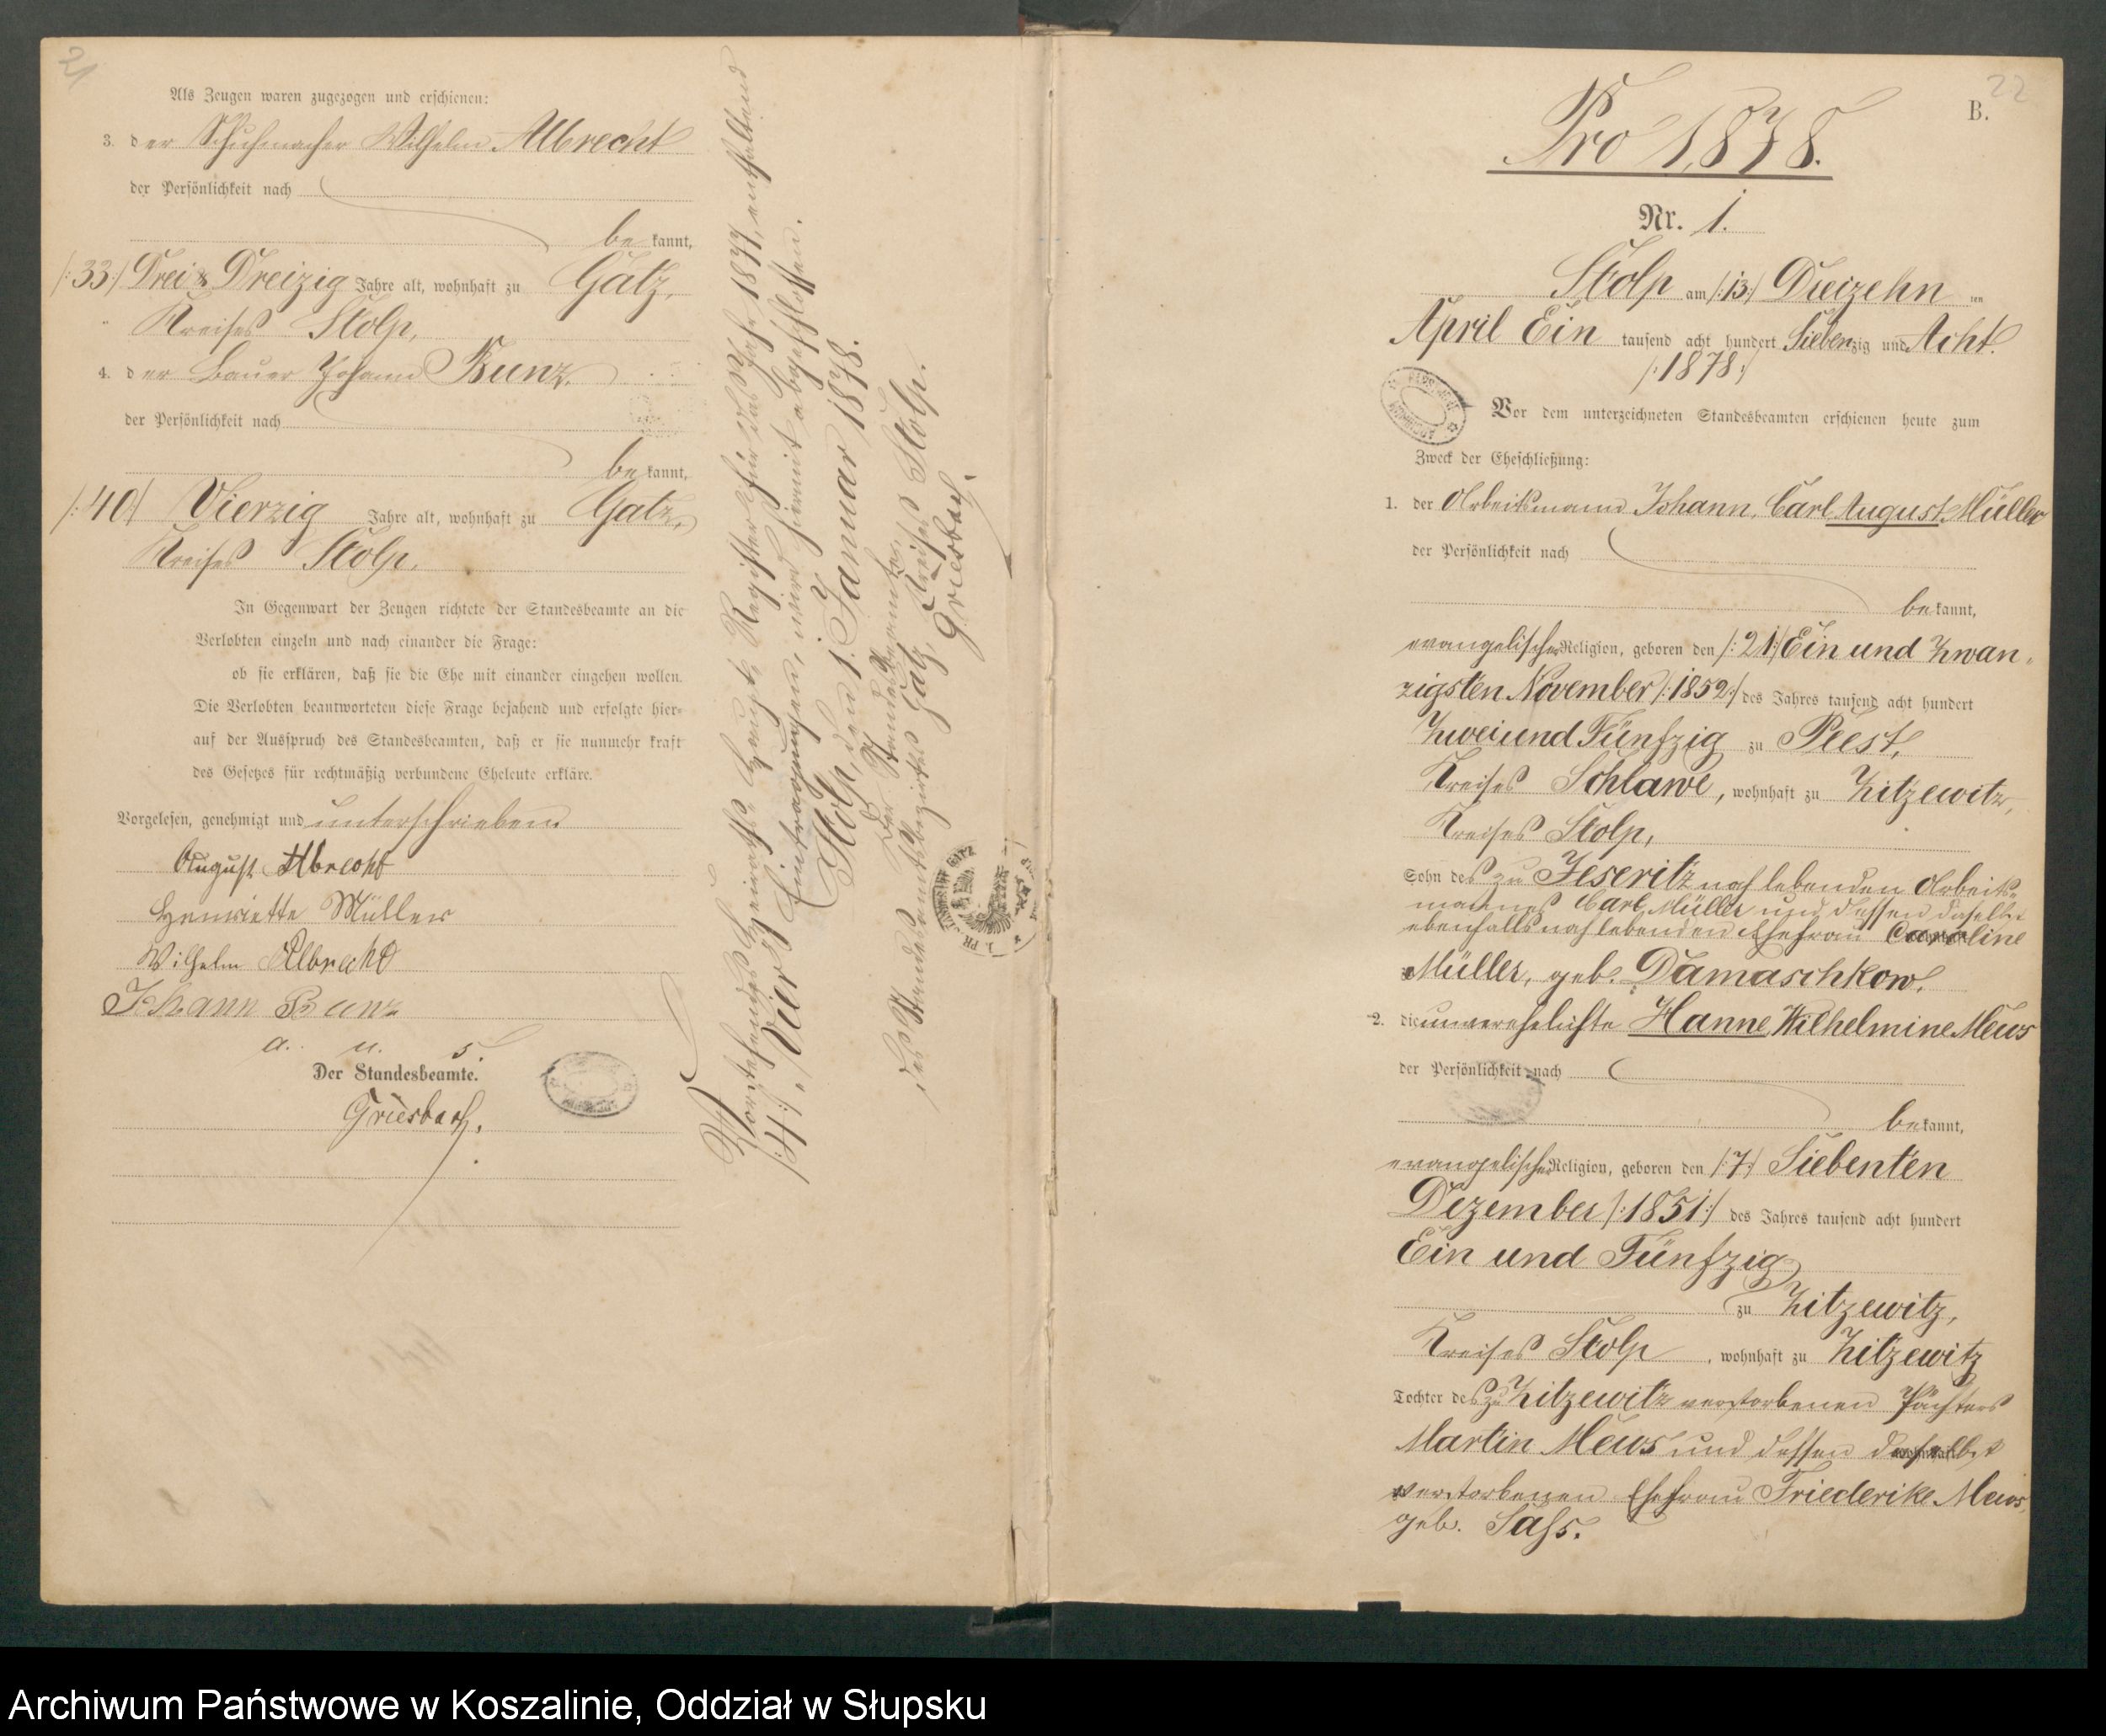 21
Als Zeugen waren zugezogen und erschienen:
3. der Schuhmacher Wilhelm Albrecht
der Persönlichkeit nach
bekannt,
/:33:/ Drei & Dreizig Jahre alt, wohnhaft zu Gatz,
Kreises Stolp,
4. der Bauer Johann Bunz.
der Persönlichkeit nach
bekannt,
/:40:/ Vierzig Jahre alt, wohnhaft zu Gatz,
Kreises Stolp.
In Gegenwart der Zeugen richtete der Standesbeamte an die
Verlobten einzeln und nach einander die Frage:
ob sie erklären, daß sie die Ehe mit einander eingehen wollen.
Die Verlobten beantworteten diese Frage bejahend und erfolgte hier-
auf der Ausspruch des Standesbeamten, daß er sie nunmehr kraft
des Gesetzes für rechtmäßig verbundene Eheleute erkläre.
Vorgelesen, genehmigt und unterschrieben
August Albrecht
Henriette Müller
Wilhelm Albrecht
Johann Bunz
a. u. s.
Der Standesbeamte.
Griesbach.
Vorstehendes Heiraths-Haupt-Register für das Jahr 1877, enthaltend
/:4:/, Vier Eintragungen, wird hiermit abgeschlossen.
Stolp, den 1. Januar 1878.
Der Standesbeamte,
des Standesamtsbezirkes Gatz, Kreises Stolp.
Griesbach.
22
B.
Pro 1878.
Nr. 1.
Stolp am /:13:/ Dreizehn ten
April Ein tausend acht hundert Siebenzig und Acht.
/:1878:/
Vor dem unterzeichneten Standesbeamten erschienen heute zum
Zweck der Eheschließung:
1. der Arbeitsmann Johann, Carl August Müller
der Persönlichkeit nach
bekannt,
evangelischer Religion, geboren den /:21:/ Ein und Zwan-
zigsten November /:1852:/ des Jahres tausend acht hundert
Zwei und Fünfzig zu Peest,
Kreises Schlawe, wohnhaft zu Zitzewitz,
Kreises Stolp,
Sohn des zu Jeseritz noch lebenden Arbeits-
mannes Carl Müller und dessen daselbst
ebenfalls noch lebenden Ehefrau Caroline
Müller, geb. Damaschkow.
2. die unverehelichte Hanne Wilhelmine Mews
der Persönlichkeit nach
bekannt,
evangelischer Religion, geboren den /:7:/ Siebenten
Dezember /:1851:/ des Jahres tausend acht hundert
Ein und Fünfzig
zu Zitzewitz,
Kreises Stolp, wohnhaft zu Zitzewitz
Tochter des zu Zitzewitz verstorbenen Pächters
Martin Mews und dessen daselbst
verstorbenen Ehefrau Friederike Mews,
geb. Saß.
Archiwum Państwowe w Koszalinie, Oddział w Słupsku